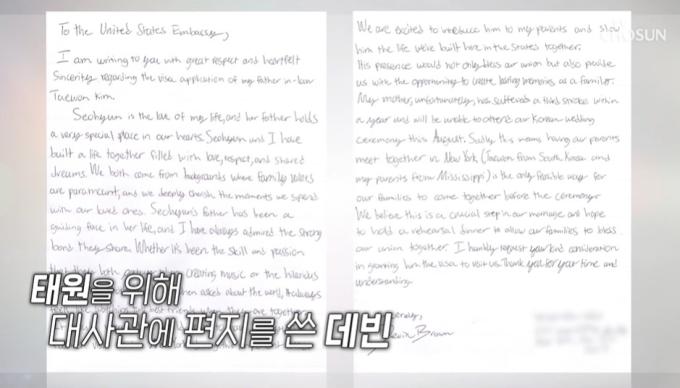 To the United States Embassy,
I am writing to you with great respect and heartfelt
sincerity regarding the visa application of my father in-law
Taewon Kim.
Seohyun is the love of my life, and her father holds
a very special place in our hearts. Seohyun and I have
built a life together filled with love, respect, and shared
dreams. We both come from backgrounds where family values
are paramount, and we deeply cherish the moments we spend
with our loved ones. Seohyun's father has been a
guiding force in her life, and I have always admired the strong
bond they share. Whether it's been the skill and passion
creating music or the hilarious
asked about the world, it always
We are excited to introduce him to my parents and show
him the life we've built here in the States together.
His presence would not only bless our union but also provide
us with the opportunity to create lasting memories as a family.
My mother, unfortunately, has suffered a third stroke within
a year and will be unable to attend our Korean wedding
ceremony this August. Sadly this means having our parents
meet together in New York (Taewon from South Korea and
my parents from Mississippi) is the only feasible way for
our families to come together before the ceremony.
We believe this is a crucial step in our marriage and hope
to hold a rehearsal dinner to allow our families to bless
our union together. I humbly request your kind consideration
in granting him the visa to visit us. Thank you for your time and
understanding.
Brown
CHOSUN
태원을 위해
대사관에 편지를 쓴 데빈